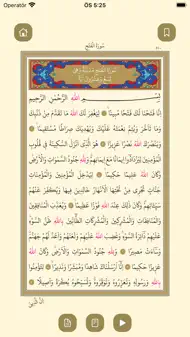 Operatör ÖS 5:25
سُورَةُ الْفَتْحِ
سُورَةُ الْفَتْحِ مَدَنِيَّةٌ وَهِيَ
تِسْعٌ وَعِشْرُونَ اٰيَةً
بِسْمِ اللّٰهِ الرَّحْمٰنِ الرَّحِيمِ
اِنَّا فَتَحْنَا لَكَ فَتْحًا مُبِينًا لِيَغْفِرَ لَكَ اللّٰهُ مَا تَقَدَّمَ مِنْ ذَنْبِكَ
وَمَا تَاَخَّرَ وَيُتِمَّ نِعْمَتَهُ عَلَيْكَ وَيَهْدِيَكَ صِرَاطًا مُسْتَقِيمًا
وَيَنْصُرَكَ اللّٰهُ نَصْرًا عَزِيزًا هُوَ الَّذِي اَنْزَلَ السَّكِينَةَ فِي قُلُوبِ
الْمُؤْمِنِينَ لِيَزْدَادُوا اِيمَانًا مَعَ اِيمَانِهِمْ وَلِلّٰهِ جُنُودُ السَّمٰوَاتِ وَالْاَرْضِ
وَكَانَ اللّٰهُ عَلِيمًا حَكِيمًا لِيُدْخِلَ الْمُؤْمِنِينَ وَالْمُؤْمِنَاتِ
جَنَّاتٍ تَجْرِي مِنْ تَحْتِهَا الْاَنْهَارُ خَالِدِينَ فِيهَا وَيُكَفِّرَ عَنْهُمْ
سَيِّـَٔاتِهِمْ وَكَانَ ذٰلِكَ عِنْدَ اللّٰهِ فَوْزًا عَظِيمًا وَيُعَذِّبَ الْمُنَافِقِينَ
وَالْمُنَافِقَاتِ وَالْمُشْرِكِينَ وَالْمُشْرِكَاتِ الظَّانِّينَ بِاللّٰهِ
ظَنَّ السَّوْءِ عَلَيْهِمْ دَائِرَةُ السَّوْءِ وَغَضِبَ اللّٰهُ عَلَيْهِمْ وَلَعَنَهُمْ وَاَعَدَّ لَهُمْ جَهَنَّمَ
وَسَاءَتْ مَصِيرًا وَلِلّٰهِ جُنُودُ السَّمٰوَاتِ وَالْاَرْضِ وَكَانَ اللّٰهُ
عَزِيزًا حَكِيمًا اِنَّا اَرْسَلْنَاكَ شَاهِدًا وَمُبَشِّرًا وَنَذِيرًا لِتُؤْمِنُوا
بِاللّٰهِ وَرَسُولِهِ وَتُعَزِّرُوهُ وَتُوَقِّرُوهُ وَتُسَبِّحُوهُ بُكْرَةً وَاَصِيلًا